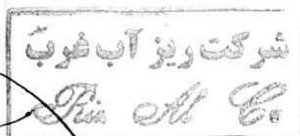 شرکت ریز آب غرب
Riz Ab C